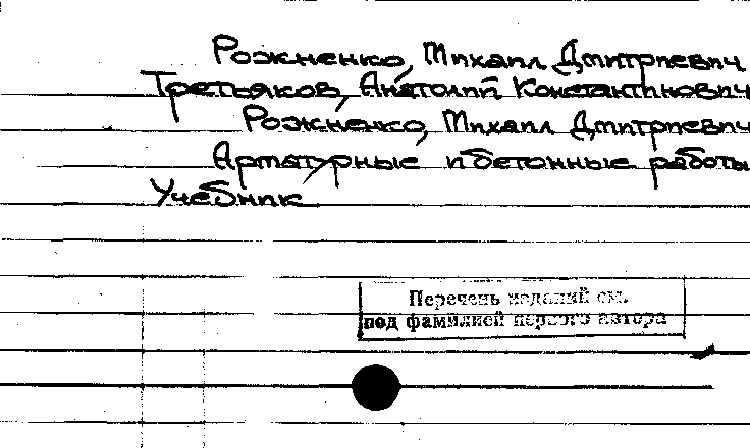 Рожненко, Михаил Дмитриевич
Третьяков, Анатолий Константинович
Рожненко, Михаил Дмитриевич
Арматурные и бетонные работы
Учебник
Перечень изданий см.
под фамилией первого автора